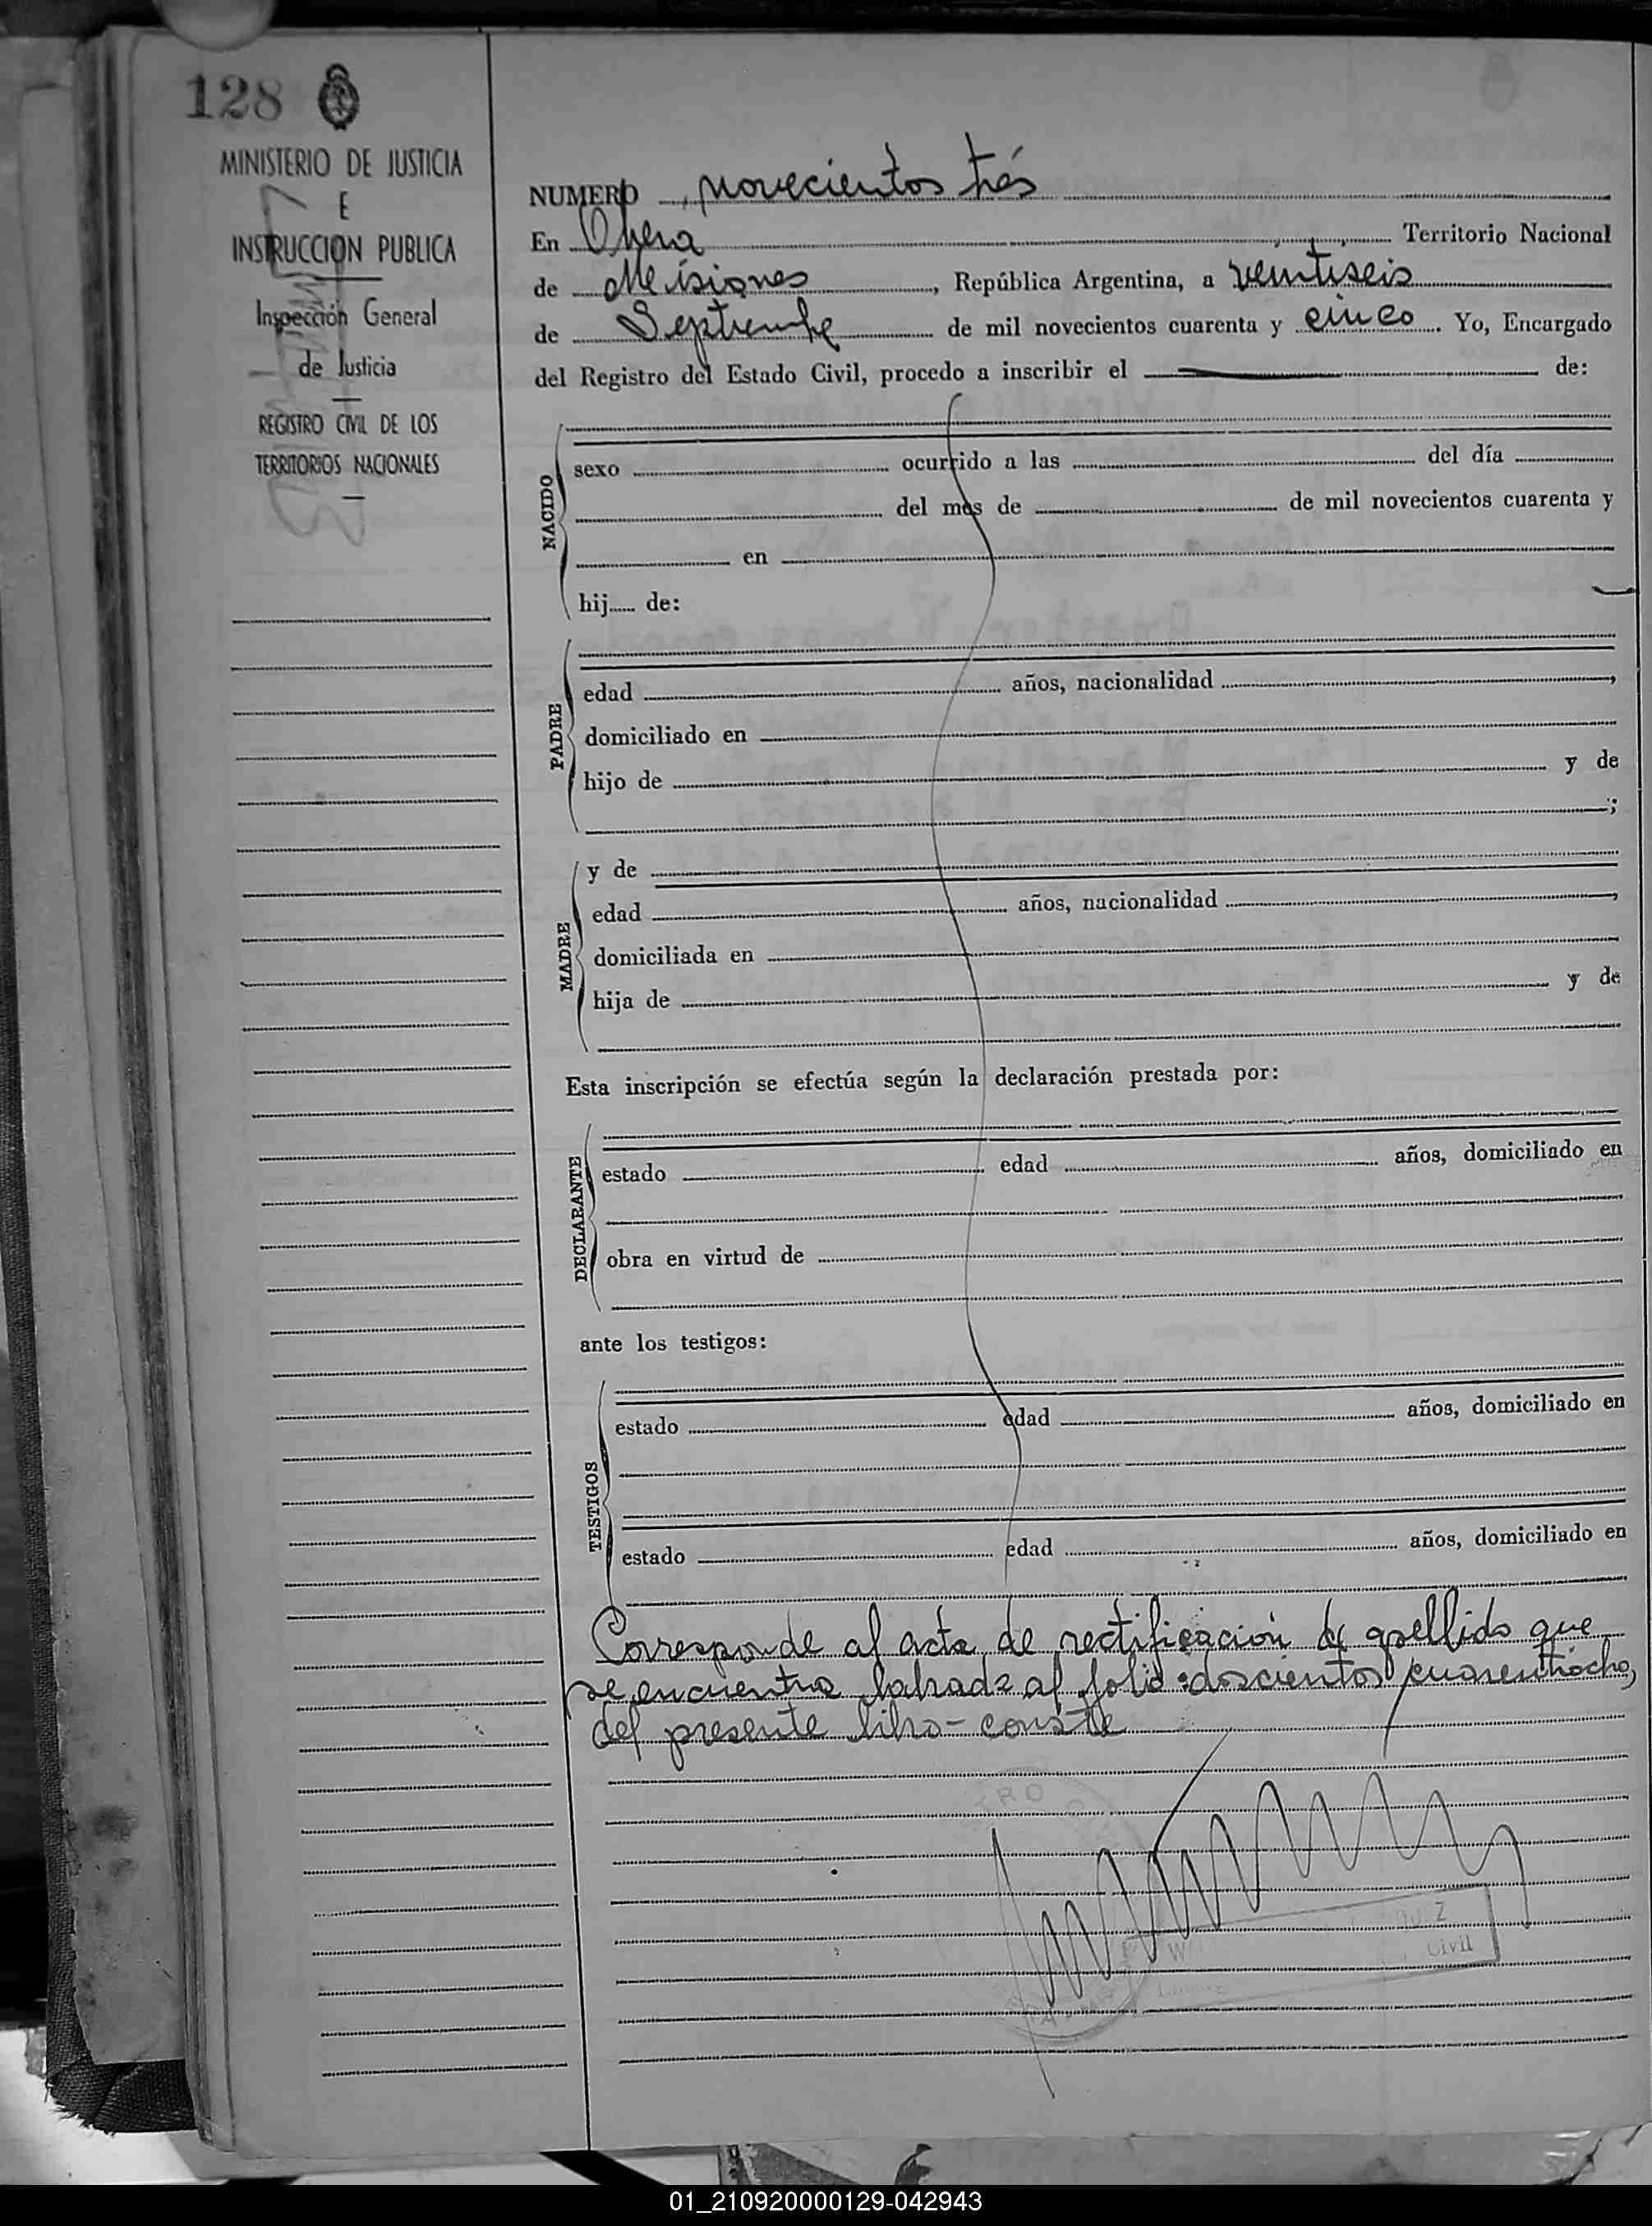 128
MINISTERIO DE JUSTICIA
E
INSTRUCCION PUBLICA
Inspección General
de Justicia
REGISTRO CIVIL DE LOS
TERRITORIOS NACIONALES
NUMERO novecientos trés
En Obera Territorio Nacional
de Misiones, República Argentina, a veintiseis
de Septiembre de mil novecientos cuarenta y cinco. Yo, Encargado
del Registro del Estado Civil, procedo a inscribir el de:
NACIDO
sexo ocurrido a las del día
del mes de de mil novecientos cuarenta y
en
hij de:
PADRE
edad años, nacionalidad ,
domiciliado en
hijo de y de
;
MADRE
y de
edad años, nacionalidad ,
domiciliada en
hija de y de
Esta inscripción se efectúa según la declaración prestada por:
DECLARANTE
estado edad años, domiciliado en
obra en virtud de
ante los testigos:
TESTIGOS
estado edad años, domiciliado en
estado edad años, domiciliado en
Corresponde al acta de rectificación de apellido que
se encuentra labrada al folio doscientos cuarentiocho,
del presente libro - conste
TRO
Z
Civil
01_210920000129-042943